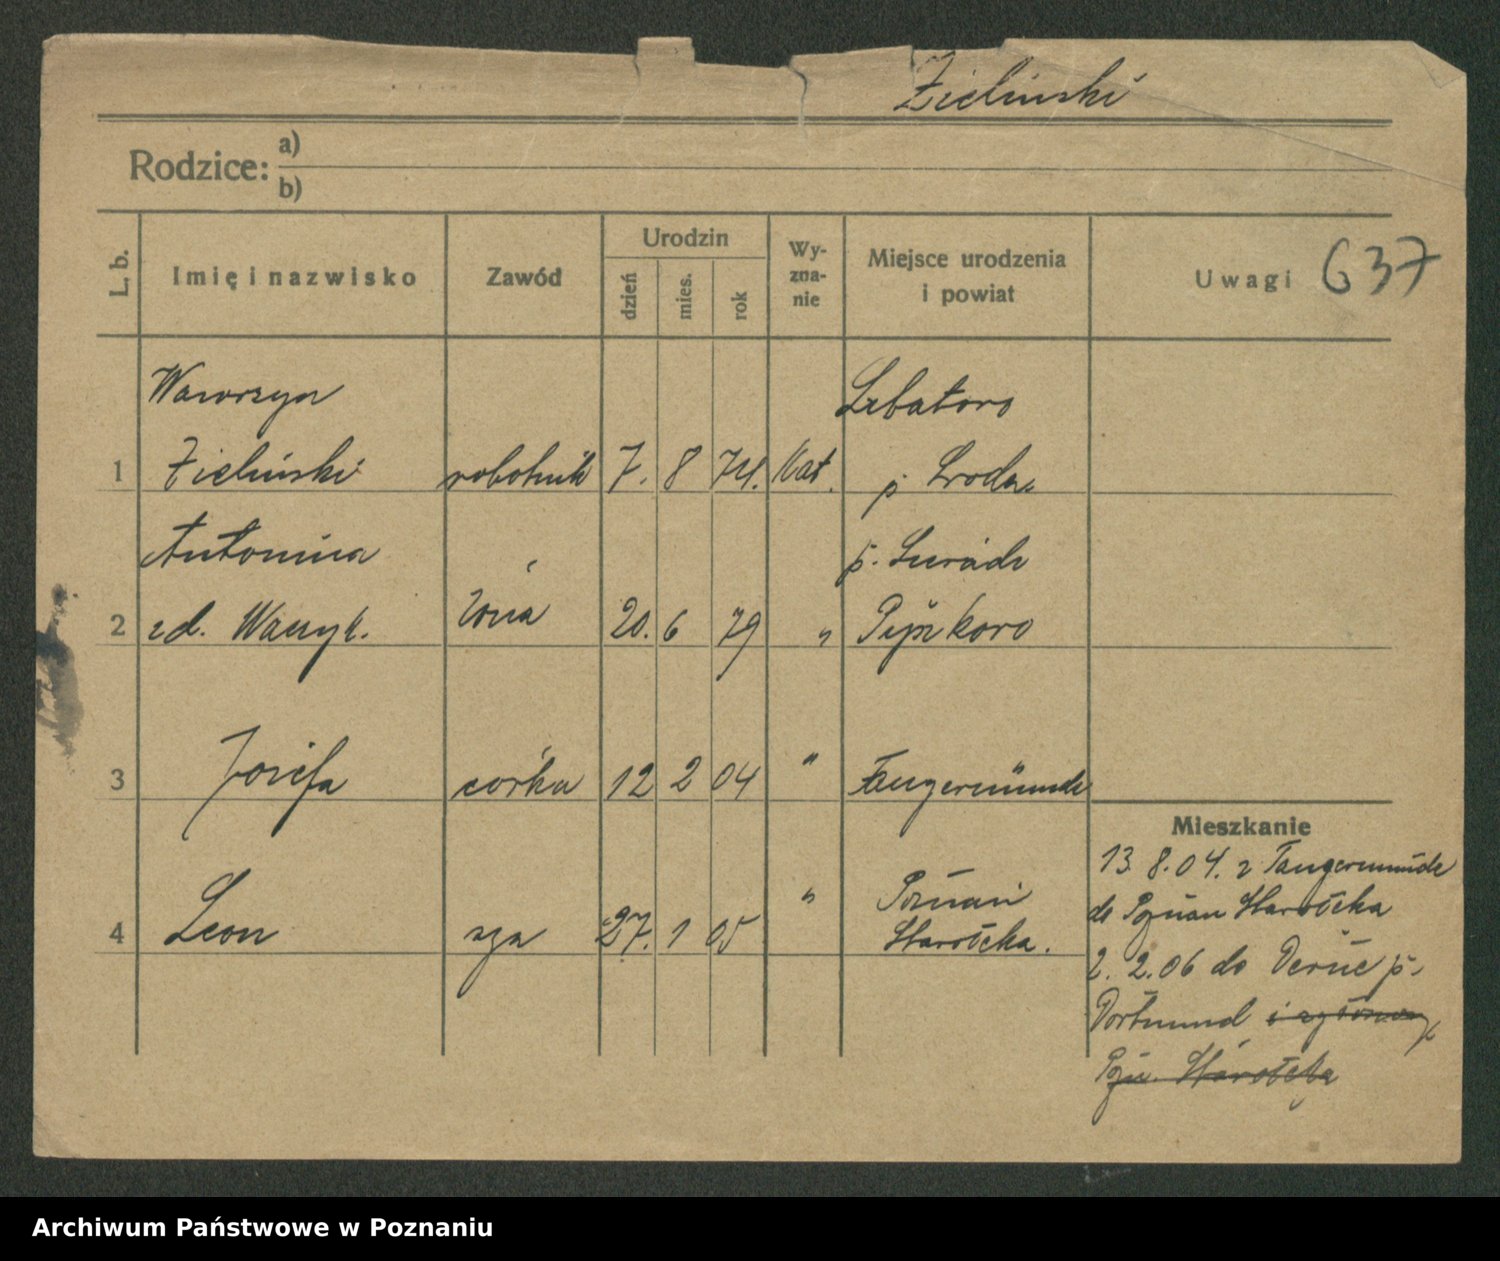 Zieliński
Rodzice: a)
b)
L. b.
Imię i nazwisko
Zawód
Urodzin
dzień
mies.
rok
Wy-
zna-
nie
Miejsce urodzenia
i powiat
Uwagi 637
Wawrzyn
1 Zieliński robotnik 7. 8 74. Kat.
p Środa
Antonina
2 zd. żona 20. 6 79 "
3 Józefa córka 12 2 04 " Tangermünde
4 Leon syn 27. 1 05 " Poznań
Starołęka.
Mieszkanie
13. 8. 04. z Tangermünde
do Poznan Starołęka
2. 2. 06 do Derne p.
Dortmund
Pozn. Starołęka
Archiwum Państwowe w Poznaniu